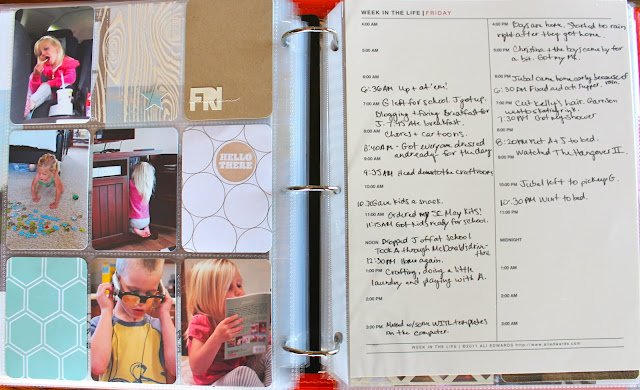 FRI
HELLO
THERE
WEEK IN THE LIFE | FRIDAY
4:00 AM
5:00 AM
6:30AM Up + at 'em!
7:00 AM G left for school. J got up.
Blogging + fixing breakfast for
J - 7:45 Ate breakfast.
Chores + cartoons.
8:40AM - Got everyone dressed
and ready for the day
9:35AM Head down to the craft room
10:30 Gave kids a snack.
11:00 AM Ordered my SC May Kits!
11:15AM Got kids ready for school.
NOON Dropped J off at school
Took A through McDonald's drive-
thru
12:30PM Home again.
1:00 PM Crafting, doing a little
laundry and playing with A.
2:00 PM
3:00 PM Messed w/some WITL templates
on the computer.
4:00 PM Boys are home. Started to rain
right after they got home.
5:00 PM Christina + the boys came by for
a bit. Got my
Jubal came home early because of
rain.
6:30 PM Fixed and ate supper.
7:00 PM Cut Kelly's hair. Garrison
went to
7:30PM Got my shower
8:00 PM
8:20PM Put A + J to bed.
Watched The Hangover II.
10:00 PM Jubal left to pickup G.
10:30PM Went to bed.
11:00 PM
MIDNIGHT
1:00 AM
2:00 AM
3:00 AM
WEEK IN THE LIFE | ©2011 ALI EDWARDS http://www.aliedwards.com